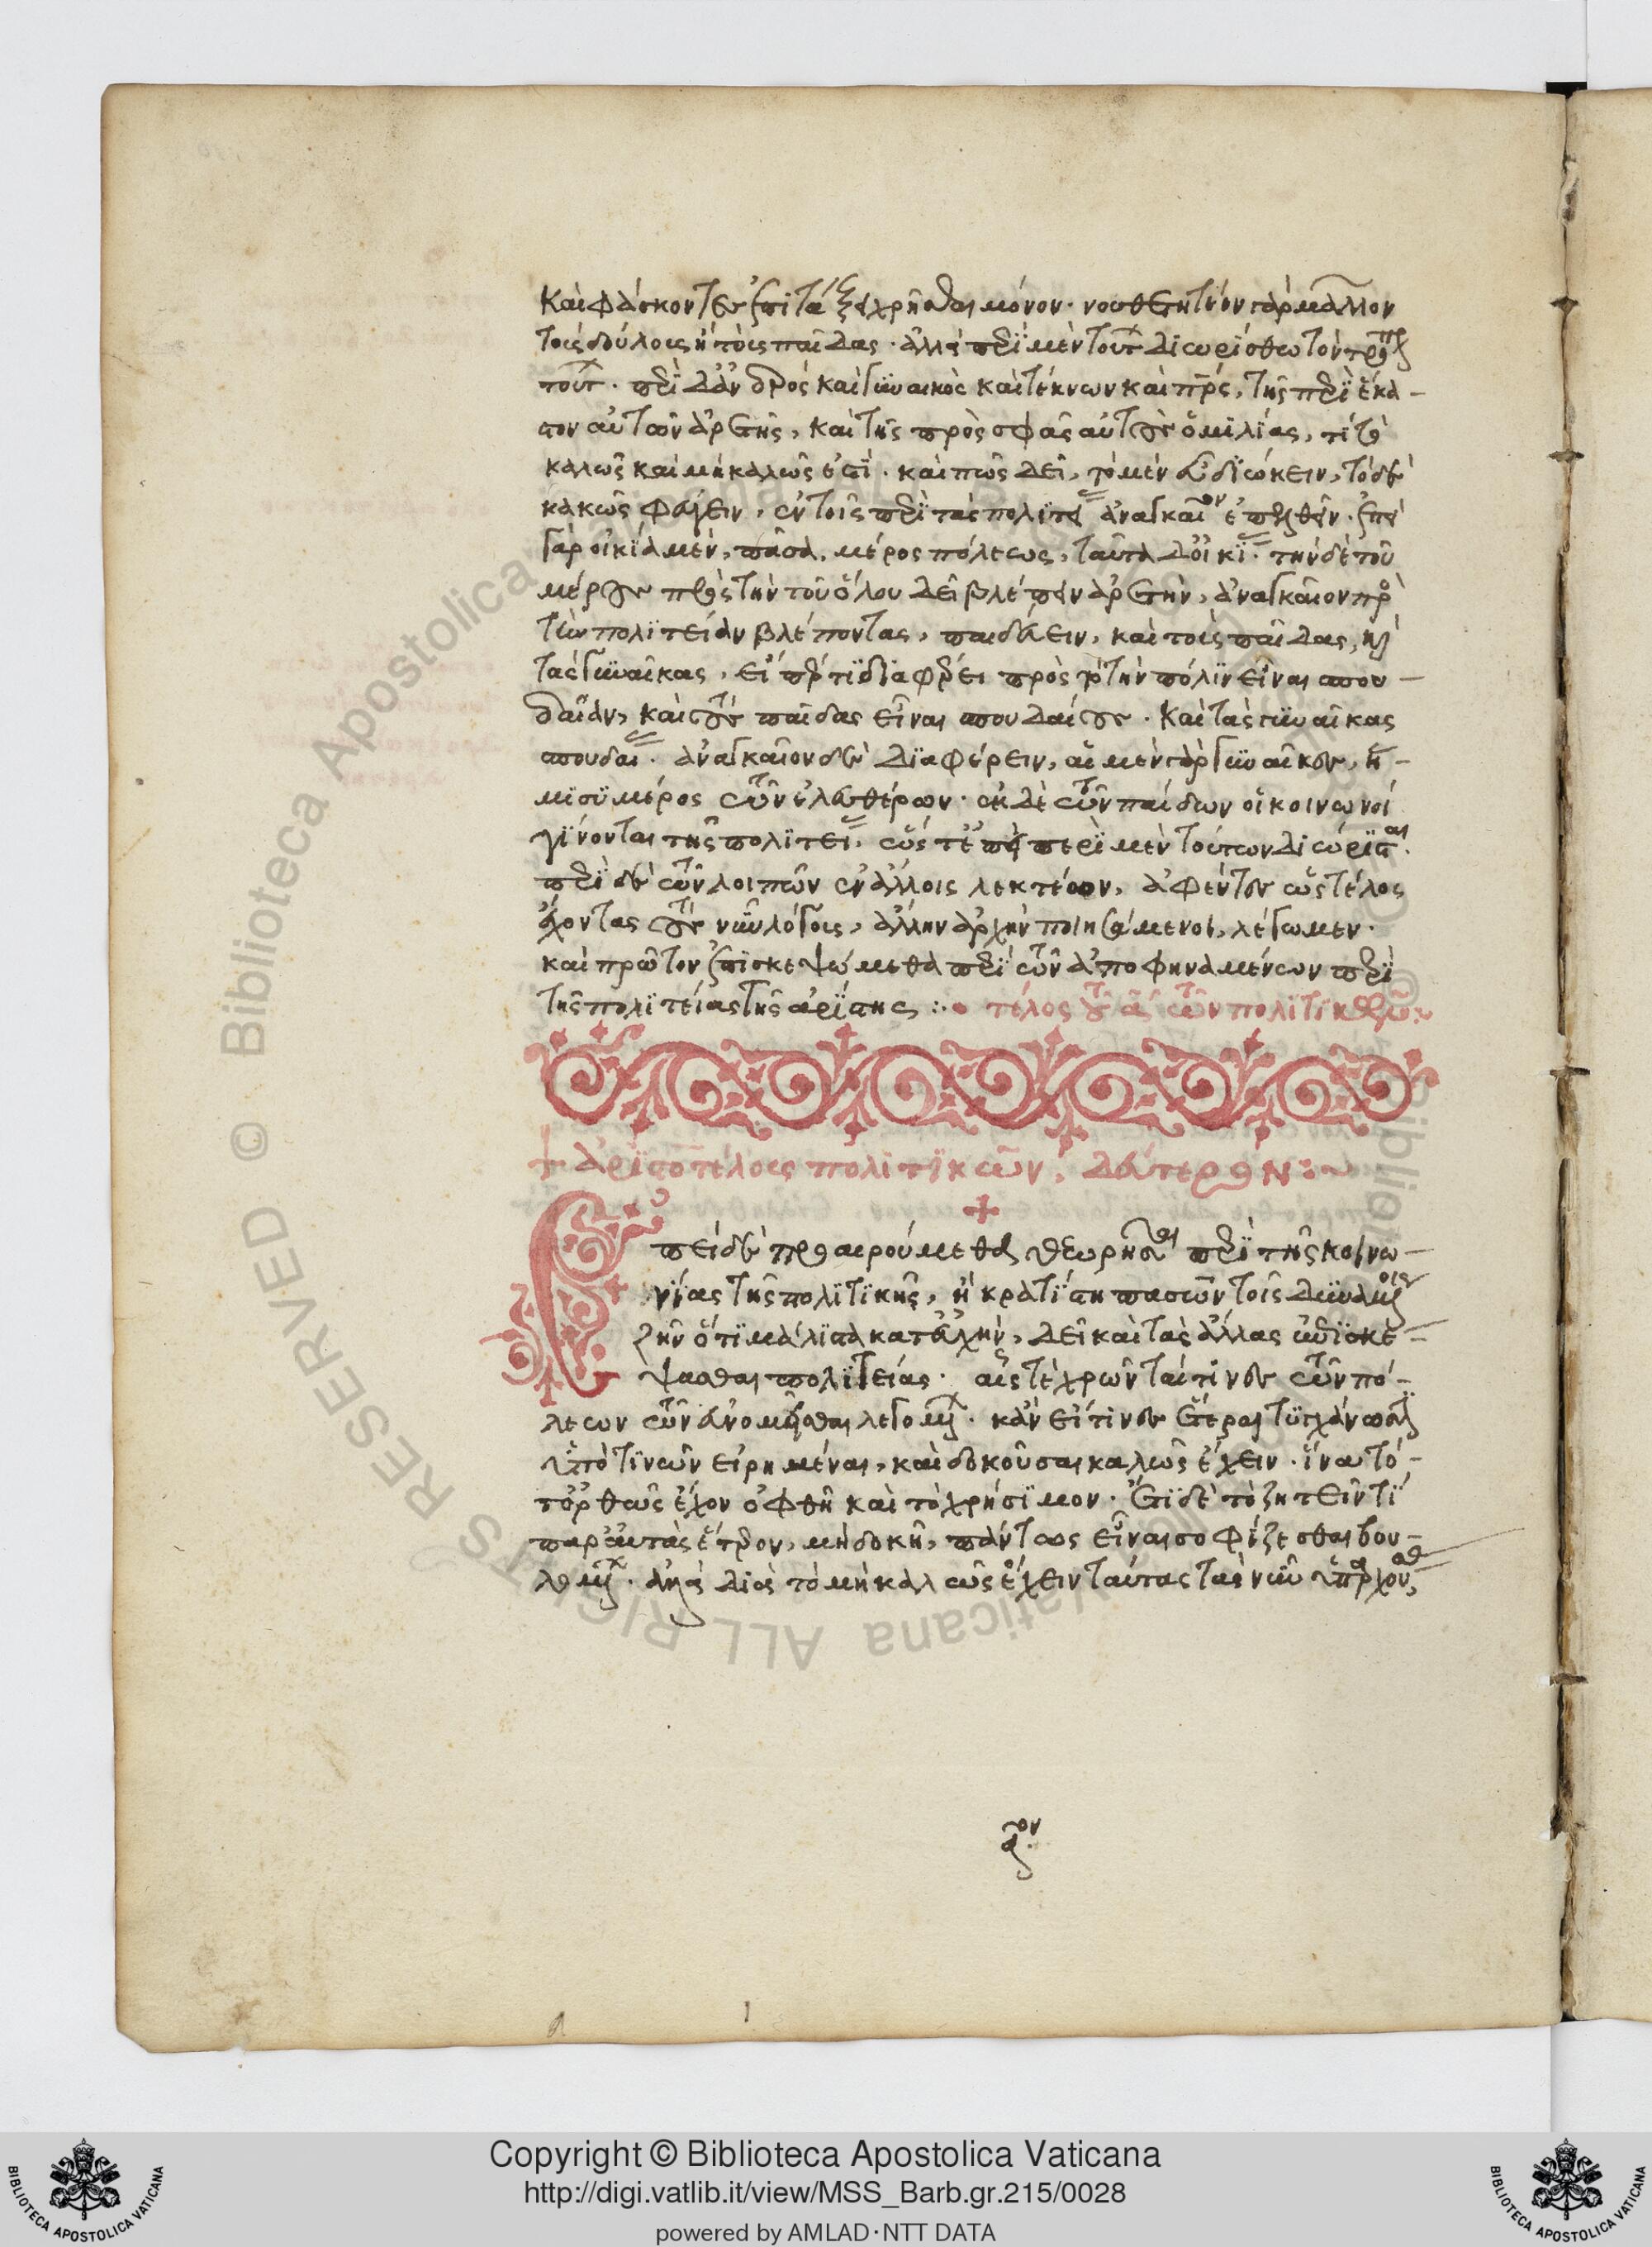 καὶ φάσκοντες ἐπιτάξει χρῆσθαι μόνον· νουθετητέον γὰρ μᾶλλον
τοὺς δούλους ἢ τοὺς παῖδας· ἀλλὰ περὶ μὲν τούτ διωρίσθω τὸν τρόπ
τοῦτ· περὶ δ' ἀνδρὸς καὶ γυναικὸς καὶ τέκνων καὶ πρς, τῆς περὶ ἕκα-
στον αὐτῶν ἀρετῆς, καὶ τῆς πρὸς σφᾶς αὐτοὺς ὁμιλίας, τί τὸ
καλῶς καὶ μὴ καλῶς ἐστὶ· καὶ πῶς δεῖ, τὸ μὲν εὖ διώκειν, τὸ δὲ
κακῶς φεύγειν, ἐν τοῖς περὶ τὰς πολιτεί ἀναγκαῖον ἐπελθεῖν· ἐπεὶ
γὰρ οἰκία μὲν, πᾶσα, μέρος πόλεως, ταῦτα δ' οἰκί· τὴν δὲ τοῦ
μέρους πρὸς τὴν τοῦ ὅλου δεῖ βλέπειν ἀρετὴν, ἀναγκαῖον πρὸ
τὴν πολιτείαν βλέποντας, παιδεύειν, καὶ τοὺς παῖδας, κ
τὰς γυναῖκας, εἴπερ τι διαφέρει πρὸς τὸ τὴν πόλιν εἶναι σπου-
δαίαν, καὶ τοὺς παῖδας εἶναι σπουδαίους· καὶ τὰς γυναῖκας
σπουδαί· ἀναγκαῖον δὲ διαφέρειν, αἱ μὲν γὰρ γυναῖκες, ἥ-
μισυ μέρος τῶν ἐλευθέρων· ἐκ δὲ τῶν παίδων οἱ κοινωνοὶ
γίνονται τῆς πολιτεί· ὥστ' ἐπεὶ περὶ μὲν τούτων διώρισται·
περὶ δὲ τῶν λοιπῶν ἐν ἄλλοις λεκτέον, ἀφέντες ὡς τέλος
ἔχοντας τοὺς νῦν λόγους, ἄλλην ἀρχὴν ποιησάμενοι, λέγωμεν·
καὶ πρῶτον ἐπισκεψώμεθα περὶ τῶν ἀποφηναμένων περὶ
τῆς πολιτείας τῆς ἀρίστης :· τέλος τοῦ αʹ τῶν πολιτικῶν:~
+ ἀριστοτέλους πολιτικῶν, δεύτερον:~
+
Ἐπεὶ δὲ προαιρούμεθα θεωρῆσαι περὶ τῆς κοινω-
νίας τῆς πολιτικῆς, ἣ κρατίστη πασῶν τοῖς δυναμένοις
ζῆν ὅτι μάλιστα κατ' εὐχὴν, δεῖ καὶ τὰς ἄλλας ἐπισκέ-
ψασθαι πολιτείας· αἷς τε χρῶνταί τινες τῶν πό-
λεων τῶν εὐνομεῖσθαι λεγομέν· κἂν εἴ τινες ἕτεραι τυγχάνωσιν
ὑπὸ τινῶν εἰρημέναι, καὶ δοκοῦσαι καλῶς ἔχειν· ἵνα τό-
τ' ὀρθῶς ἔχον ὀφθῇ καὶ τὸ χρήσιμον· ἔτι δὲ τὸ ζητεῖν τί
παρ' αὐτὰς ἕτερον, μὴ δοκῇ, πάντως εἶναι σοφίζεσθαι βου-
λομέν· ἀλλὰ διὰ τὸ μὴ καλῶς ἔχειν ταύτας τὰς νῦν ὑπαρχούσας,
αον
Copyright © Biblioteca Apostolica Vaticana
http://digi.vatlib.it/view/MSS_Barb.gr.215/0028
powered by AMLAD·NTT DATA
BIBLIOTECA APOSTOLICA VATICANA
BIBLIOTECA APOSTOLICA VATICANA
© Biblioteca Apostolica Vaticana ALL RIGHTS RESERVED